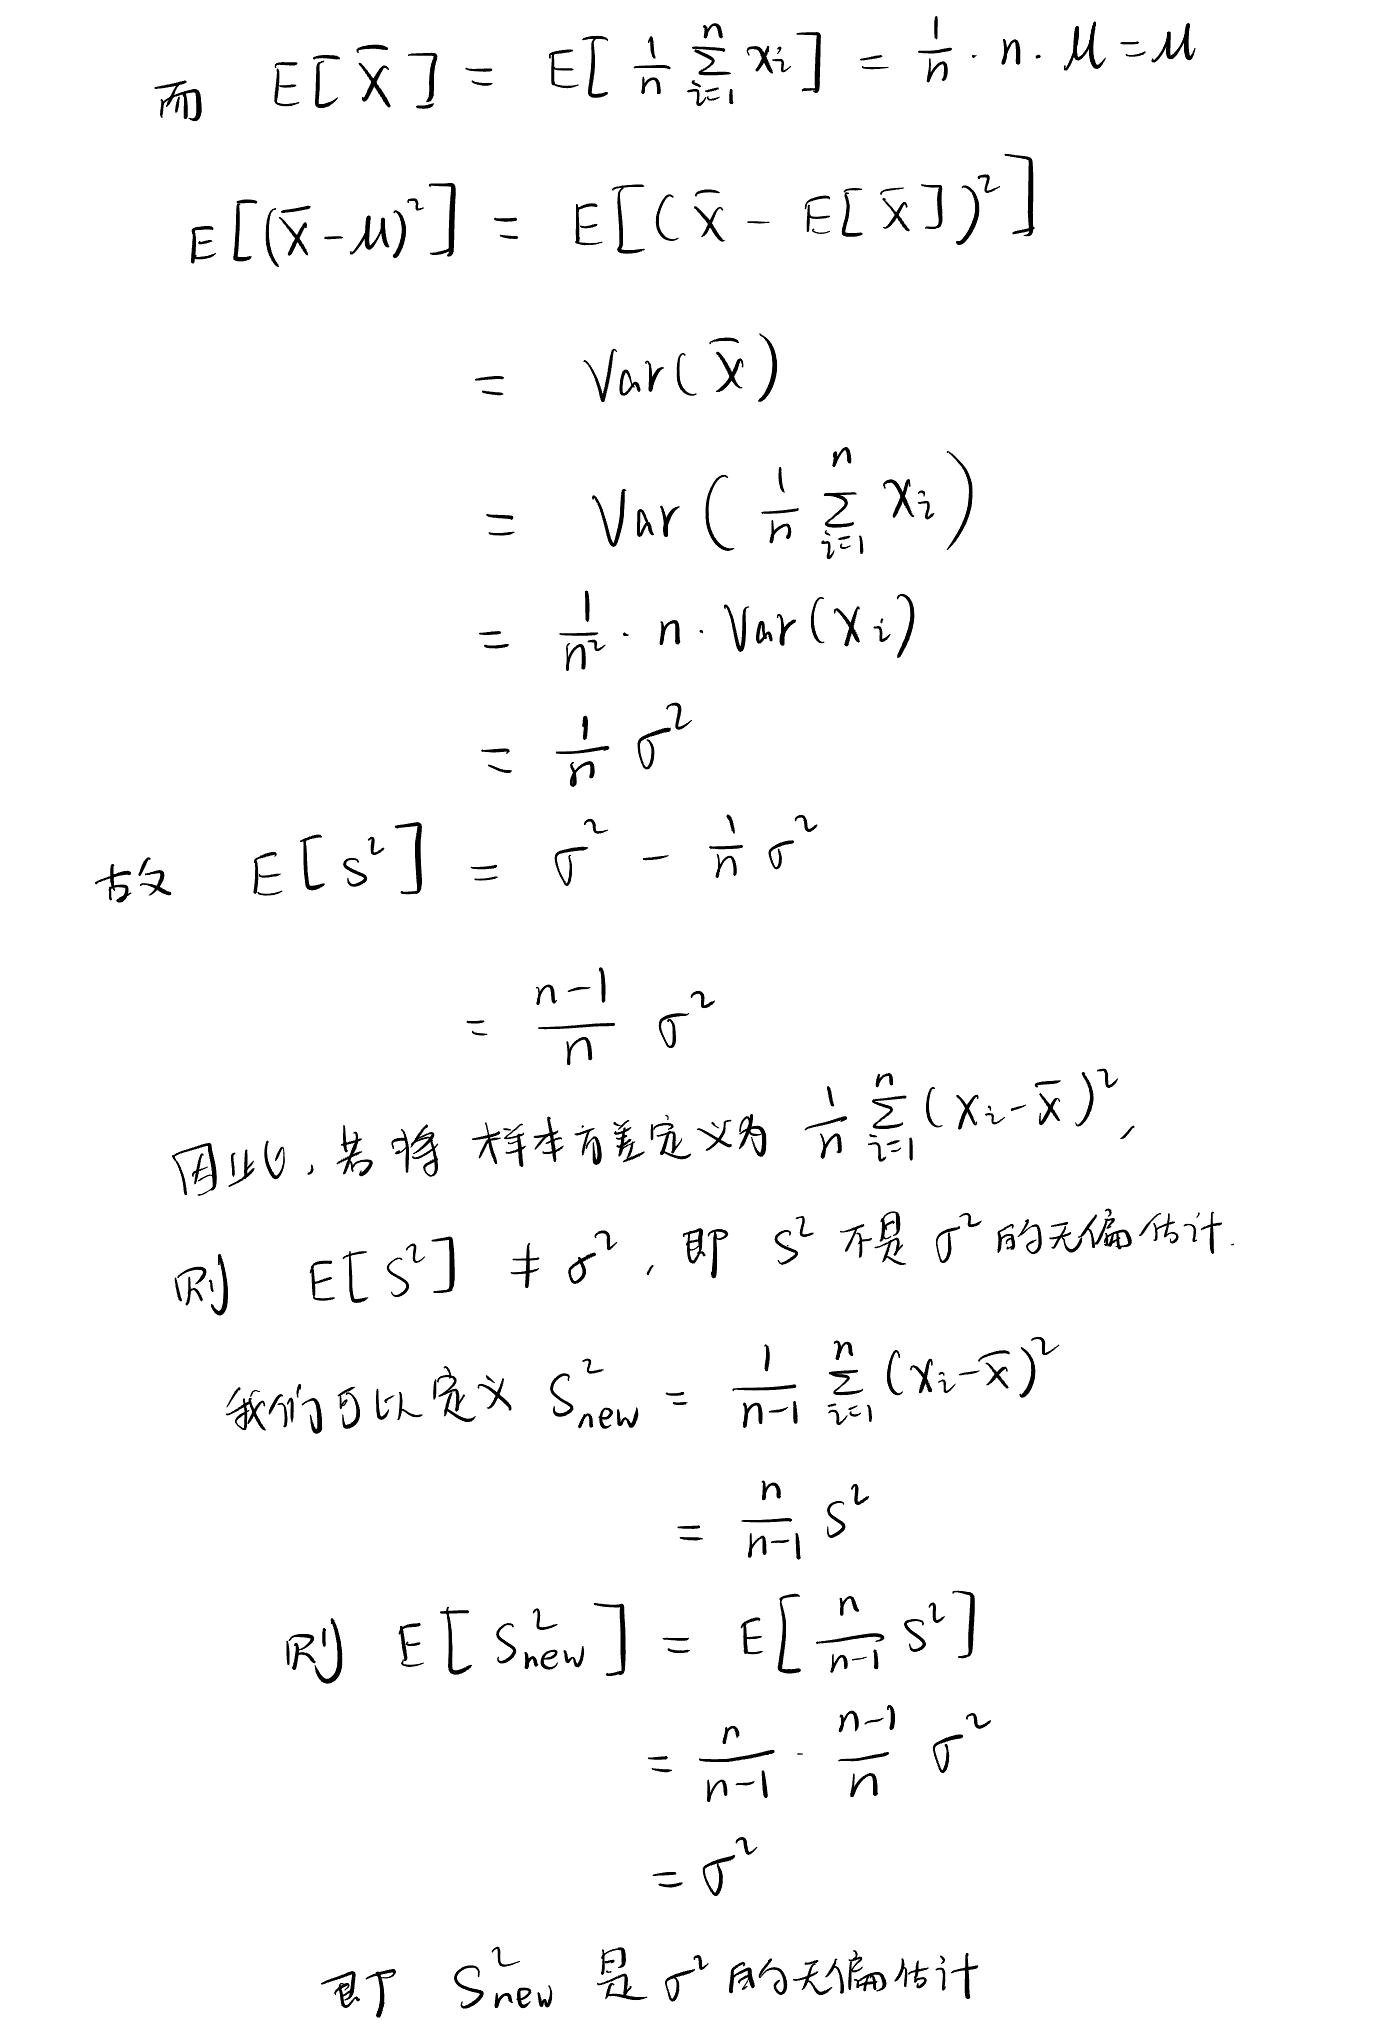 而 E[X̄] = E[1/n ∑_{i=1}^{n} xᵢ] = 1/n · n · μ = μ
E[(x̄-μ)²] = E[(x̄ - E[x̄])²]
= Var(x̄)
= Var(1/n ∑_{i=1}^{n} xᵢ)
= 1/n² · n · Var(xᵢ)
= 1/n σ²
故 E[s²] = σ² - 1/n σ²
= (n-1)/n σ²
因此, 若将 样本方差定义为 1/n ∑_{i=1}^{n} (xᵢ-x̄)²,
则 E[s²] ≠ σ², 即 s² 不是 σ² 的无偏估计.
我们可以定义 S²_new = 1/(n-1) ∑_{i=1}^{n} (xᵢ-x̄)²
= n/(n-1) s²
则 E[S²_new] = E[n/(n-1) s²]
= n/(n-1) · (n-1)/n σ²
= σ²
即 S²_new 是 σ² 的无偏估计